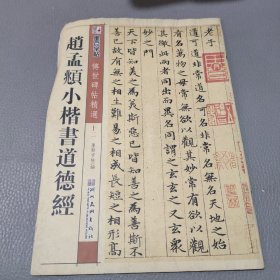 趙孟頫小楷書道德經
傳世碑帖精選
老子
道可道非常道名可名非常名無名天地之始
有名萬物之母常無欲以觀其妙常有欲以觀
其徼此兩者同出而異名同謂之玄玄之又玄衆
妙之門
天下皆知美之為美斯惡已皆知善之為善斯不
善已故有無之相生難易之相成長短之相形高
湖北美術出版社